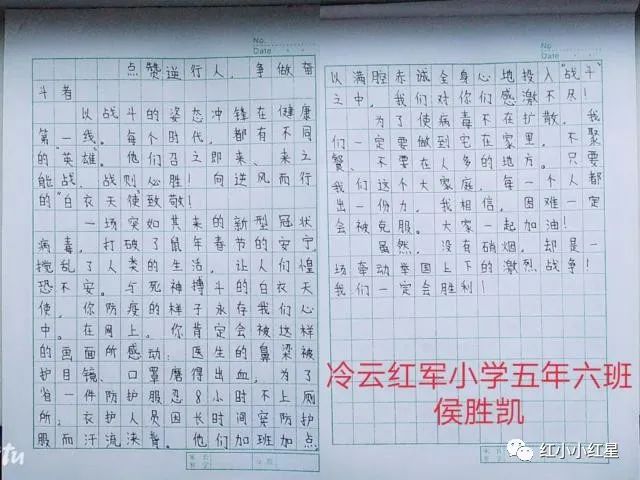 No.
Date
点赞逆行人,争做奋
斗者
以战斗的姿态冲锋在健康
第一线。每个时代,都有不同
的"英雄"。他们召之即来、来之
能战、战则必胜!向逆风而行
的"白衣天使"致敬!
一场突如其来的新型冠状
病毒,打破了鼠年春节的安宁,
搅乱了人类的生活,让人们惶
恐不安。与死神搏斗的白衣天
使,你防疫的样子永存我们心
中。在网上。你肯定会被这样
的画面所感动:医生的鼻梁被
护目镜、口罩磨得出血,为了
省一件防护服忍8小时不上厕
所,衣护人员因长时间穿防护
服而汗流浃背。他们加班加点,
No.
Date
以满腔赤诚全身心地投入"战斗"
之中,我们对你们感激不尽!
为了使病毒不在扩散,我
们一定要做到宅在家里,不聚
餐、不要在人多的地方。只要
我们这个大家庭,每一个人都
出一份力,我相信,困难一定
会被克服。大家一起加油!
虽然,没有硝烟,却是一
场牵动举国上下的激烈战争!
我们一定会胜利!
冷云红军小学五年六班
侯胜凯
红小小红星